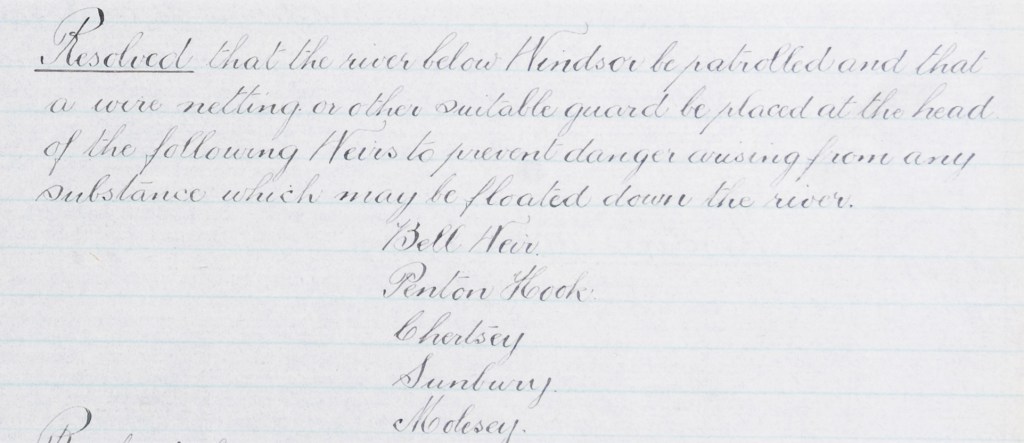 Resolved that the river below Windsor be patrolled and that
a wire netting or other suitable guard be placed at the head
of the following Weirs to prevent danger arising from any
substance which may be floated down the river.
Bell Weir.
Penton Hook.
Chertsey
Sunbury.
Molesey.